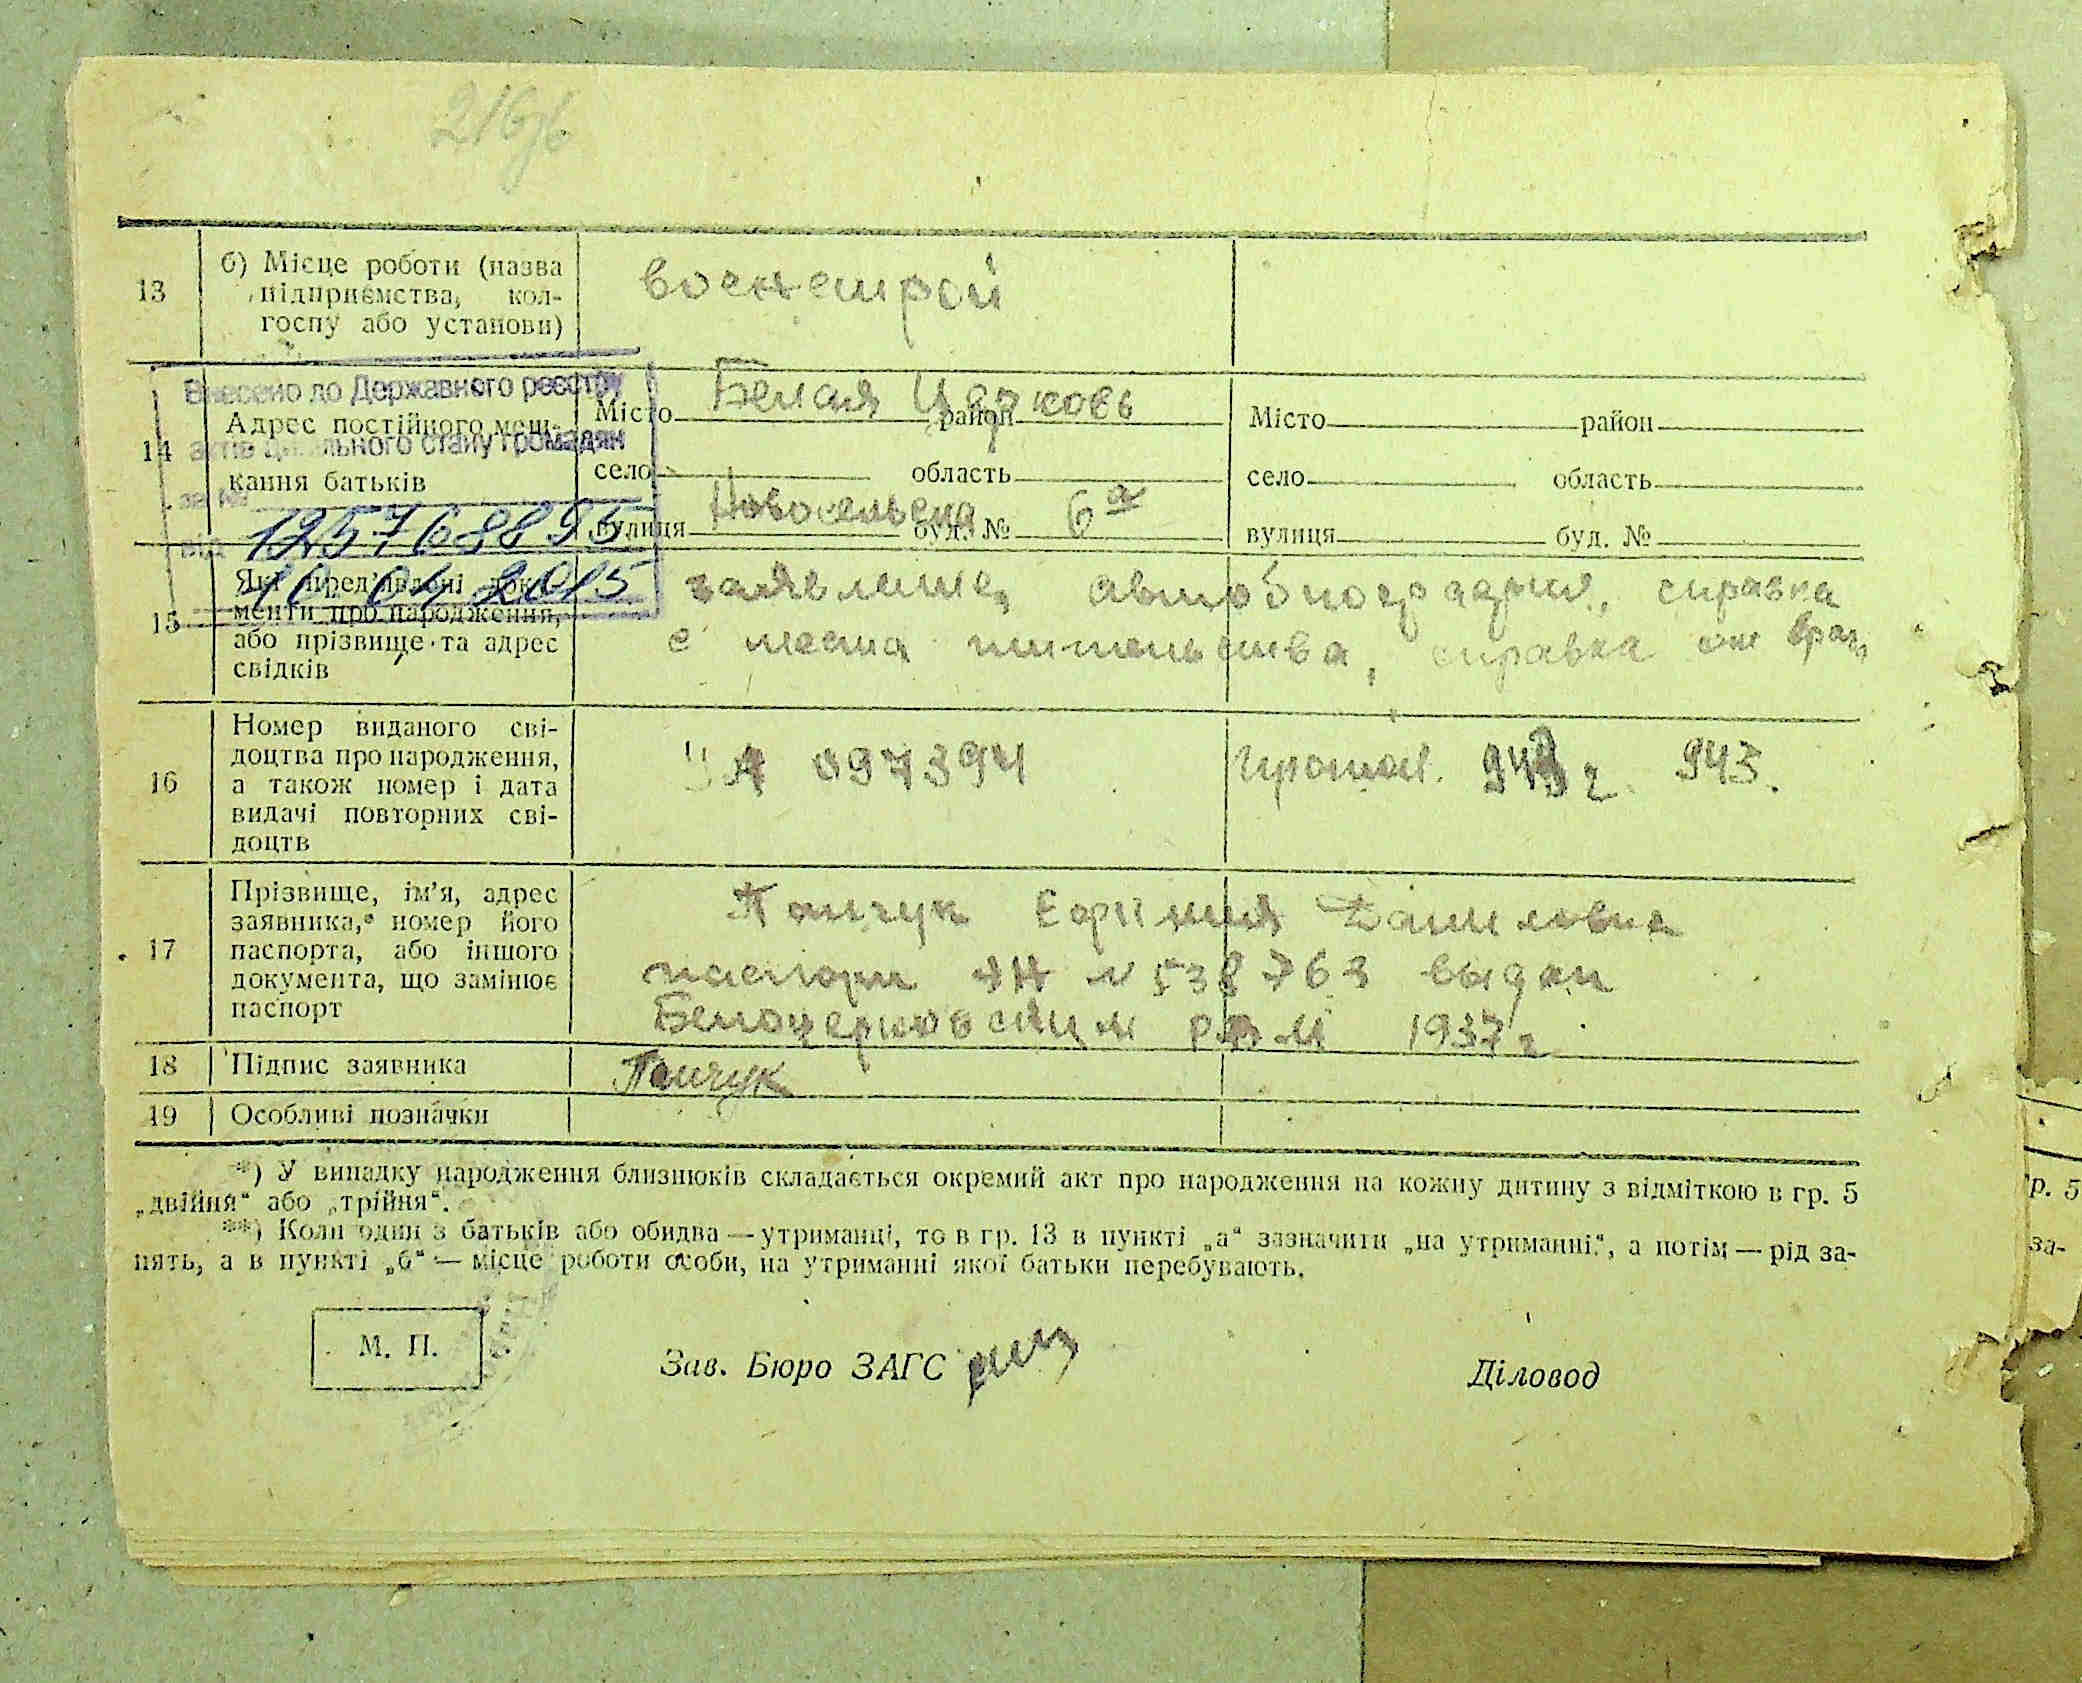 13
б) Місце роботи (назва
підприємства, кол-
госпу або установи)
военстрой
Внесено до Державного реєстру
актів цивільного стану громадян
за №
12576889 5
від 10 04 2015
14
Адрес постійного меш-
кання батьків
Місто Белая Церковь район
село область
вулиця Новосельска буд. № 6а
Місто район
село область
вулиця буд. №
15
Які пред'явлені доку-
менти про народження,
або прізвище та адрес
свідків
заявление, автобиография, справка
с места жительства, справка от врач.
16
Номер виданого сві-
доцтва про народження,
а також номер і дата
видачі повторних сві-
доцтв
А 097394
943.
17
Прізвище, ім'я, адрес
заявника, номер його
паспорта, або іншого
документа, що замінює
паспорт
Панчук Ефимия Даниловна
паспорт ЧН № 538763 выдан
Белоцерковским РОМ 1937 г
18
Підпис заявника
Панчук
19
Особливі позначки
*) У випадку народження близнюків складається окремий акт про народження на кожну дитину з відміткою в гр. 5
„двійня“ або „трійня“.
**) Коли один з батьків або обидва — утриманці, то в гр. 13 в пункті „а“ зазначити „на утриманні“, а потім — рід за-
нять, а в пункті „б“ — місце роботи особи, на утриманні якої батьки перебувають.
р. 5
за-
М. П.
Зав. Бюро ЗАГС
Діловод